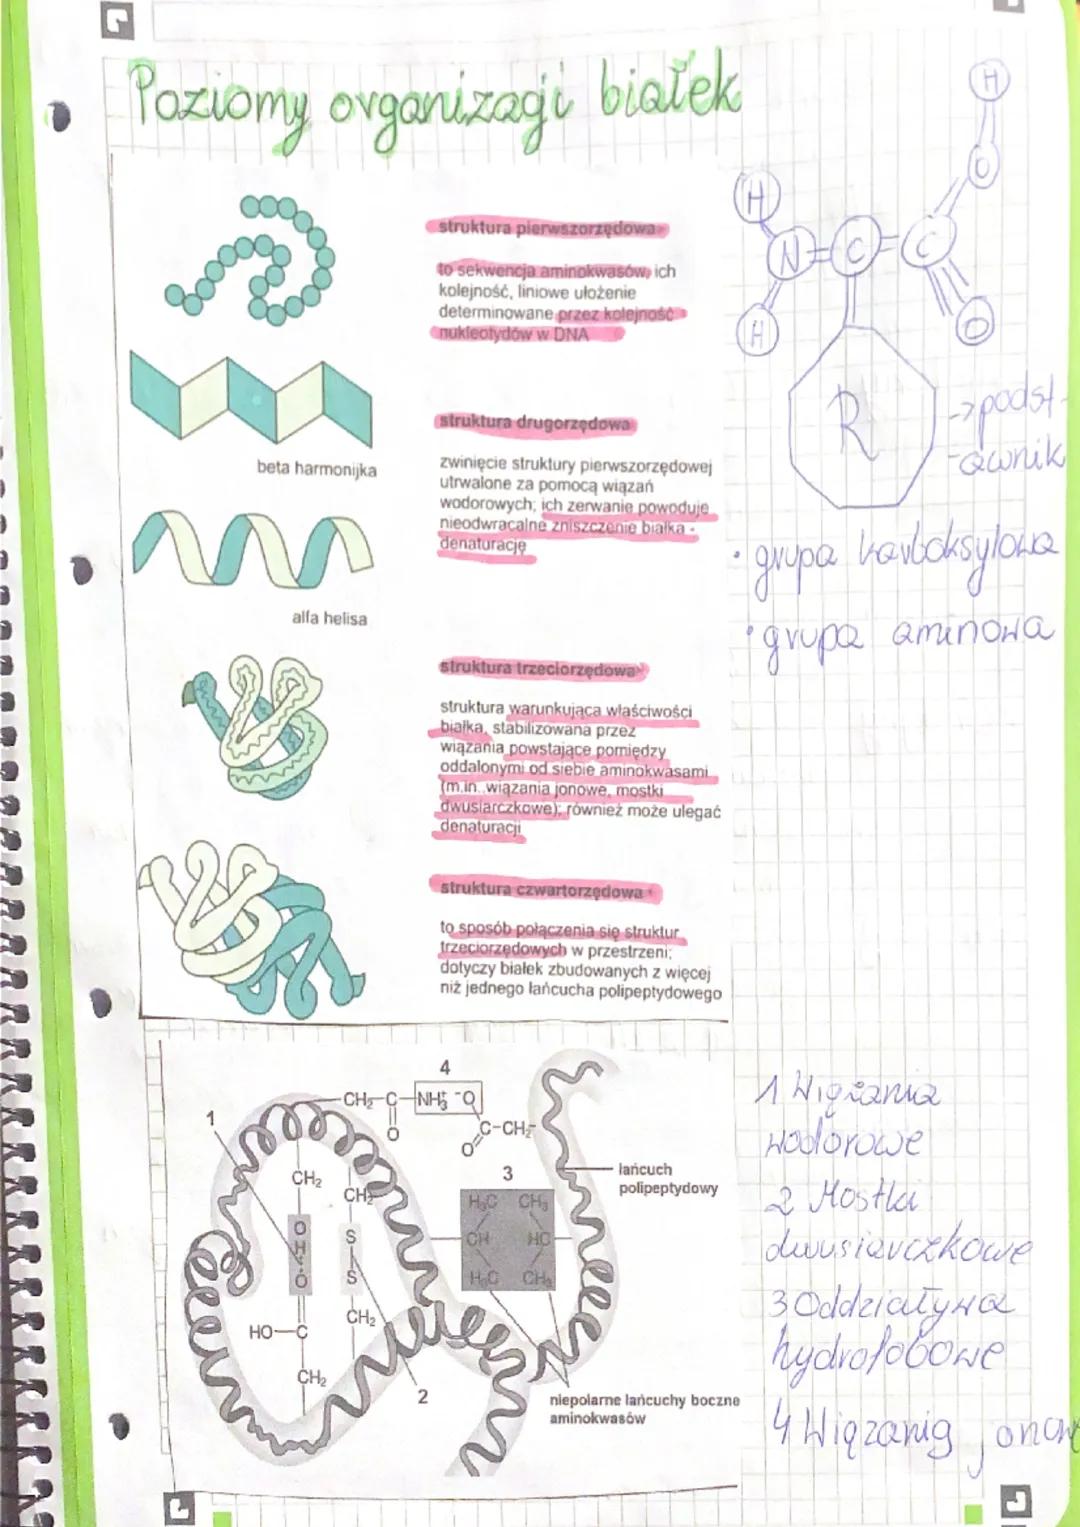 Poziomy organizagji białek
struktura pierwszorzędowa
to sekwencja aminokwasów, ich
kolejność, liniowe ułożenie
determinowane przez kolejność
nukleotydów w DNA
beta harmonijka
struktura drugorzędowa
zwinięcie struktury pierwszorzędowej
utrwalone za pomocą wiązań
wodorowych; ich zerwanie powoduje
nieodwracalne zniszczenie białka -
denaturację
alfa helisa
struktura trzeciorzędowa
struktura warunkująca właściwości
białka, stabilizowana przez
wiązania powstające pomiędzy
oddalonymi od siebie aminokwasami
(m.in. wiązania jonowe, mostki
dwusiarczkowe); również może ulegać
denaturacji
struktura czwartorzędowa
to sposób połączenia się struktur
trzeciorzędowych w przestrzeni;
dotyczy białek zbudowanych z więcej
niż jednego łańcucha polipeptydowego
H
O
H
N C C
H
O
R
->podst-
-awnik
• grupa karboksylowa
• grupa aminowa
4
CH2-C-NH3+ -O
O
C-CH2
O
1
CH2
O
H
O
HO-C
CH2
CH2
S
S
CH2
2
3
H3C CH3
CH HC
H3C CH3
łańcuch
polipeptydowy
niepolarne łańcuchy boczne
aminokwasów
1 Wiązania
wodorowe
2 Mostki
dwusiarczkowe
3 Oddziaływa
hydrofobowe
4 Wiązanią jonow